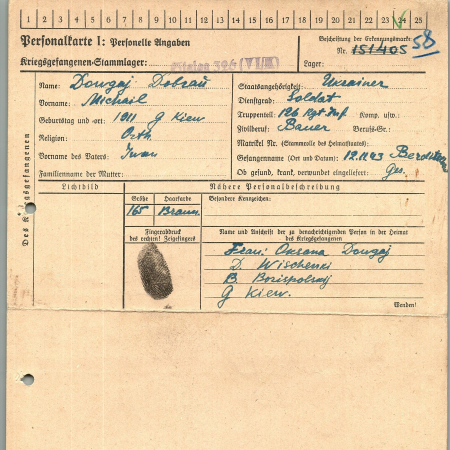 1 2 3 4 5 6 7 8 9 10 11 12 13 14 15 16 17 18 19 20 21 22 23 24 25
Personalkarte I: Personelle Angaben
Kriegsgefangenen-Stammlager: Stalag 326 (VI/K)
Beschriftung der Erkennungsmarke
Nr. 151405 58
Lager:
Des Kriegsgefangenen
Name: Dowgaj Dobrau
Vorname: Michail
Geburtstag und -ort: 1911 G Kiew
Religion: Orth.
Vorname des Vaters: Iwan
Familienname der Mutter:
Staatsangehörigkeit: Ukrainer
Dienstgrad: Soldat
Truppenteil: 126 Rgt. Inf. Komp. usw.:
Zivilberuf: Bauer Berufs-Gr.:
Matrikel Nr. (Stammrolle des Heimatstaates):
Gefangennahme (Ort und Datum): 12.11.43
Ob gesund, krank, verwundet eingeliefert: ges.
Lichtbild
Nähere Personalbeschreibung
Größe Haarfarbe Besondere Kennzeichen:
165 Braun
Fingerabdruck
des rechten! Zeigefingers
Name und Anschrift der zu benachrichtigenden Person in der Heimat
des Kriegsgefangenen
Frau: Oksana Dowgaj
D. Wischenki
B. Borispolskij
G Kiew.
Wenden!